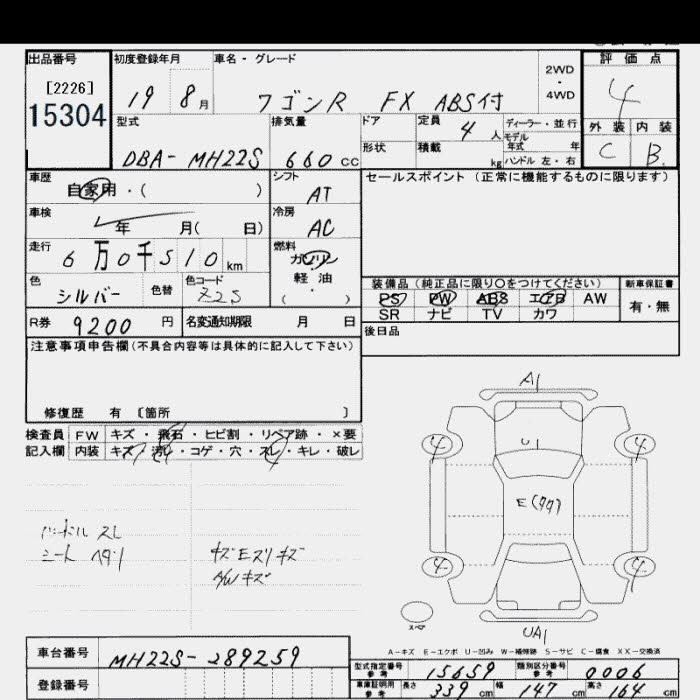 出品番号 初度登録年月 車名・グレード 2WD・4WD 評価点
[2226] 15304 19 8月 ワゴンR FX ABS付 4
型式 排気量 ドア 定員 4人 ディーラー・並行 外装 内装
モデル年式 年
DBA-MH22S 660cc 形状 積載 kg ハンドル 左・右 C B.
車歴 自家用・( ) シフト AT セールスポイント (正常に機能するものに限ります)
車検 年 月( 日) 冷房 AC
走行 6万0千510km 燃料 ガソリン
軽油
色 シルバー 色替 色コード Z2S ( )
装備品 (純正品に限り○をつけてください) 新車保証書
PS PW ABS エアB AW 有・無
SR ナビ TV カワ
R券 9200円 名変通知期限 月 日
後日品
注意事項申告欄 (不具合内容等は具体的に記入して下さい)
修復歴 有 〔箇所 〕
検査員 FW キズ・飛石・ヒビ割・リペア跡・×要
記入欄 内装 キズ・汚レ・コゲ・穴・スレ・キレ・破レ
A1
4 4
U1
E(
4 4
スペア
UA1
ハンドル スレ
シート ヘタリ
キズEスリキズ
AWキズ
A-キズ E-エクボ U-凹み W-補修跡 S-サビ C-腐食 XX-交換済
車台番号 MH22S-289259
型式指定番号 参考 15659 類別区分番号 参考 0006
登録番号
車庫証明用 参考 長さ 339cm 幅 147cm 高さ 164cm